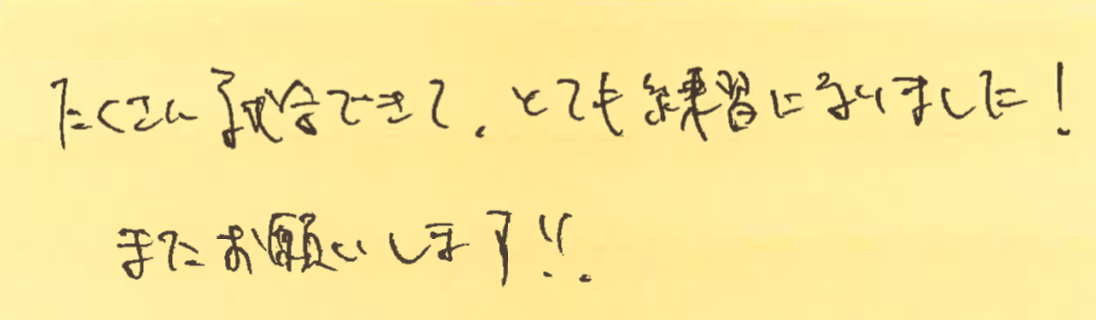 たくさん試合できて、とても練習になりました！
またお願いします!!